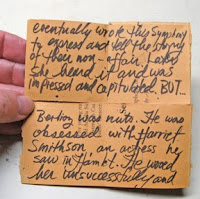 eventually wrote this Symphony
to express and tell the story
of their non-affair. Later
she heard it and was
impressed and capitulated. BUT...
Berlioz was nuts. He was
obsessed with Harriet
Smithson, an actress he
saw in Hamlet. He wooed
her unsuccessfully and